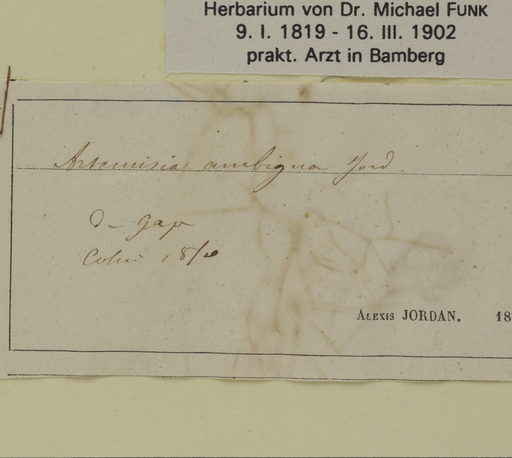 Herbarium von Dr. Michael FUNK
9. I. 1819 - 16. III. 1902
prakt. Arzt in Bamberg
Artemisia ambigua Jord.
Gap
ALEXIS JORDAN. 18